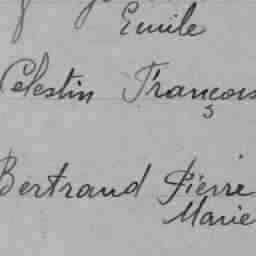 Emile
Celestin François
Bertrand Pierre
Marie